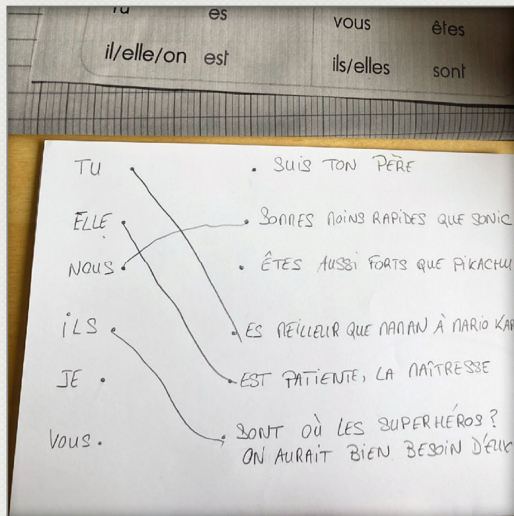 Tu es
il/elle/on est
vous êtes
ils/elles sont
TU
ELLE
NOUS
ILS
JE
VOUS
SUIS TON PÈRE
SOMMES MOINS RAPIDES QUE SONIC
ÊTES AUSSI FORTS QUE PIKACHU
ES MEILLEUR QUE MAMAN À MARIO KAR
EST PATIENTE, LA MAÎTRESSE
SONT OÙ LES SUPERHÉROS?
ON AURAIT BIEN BESOIN D'EUX